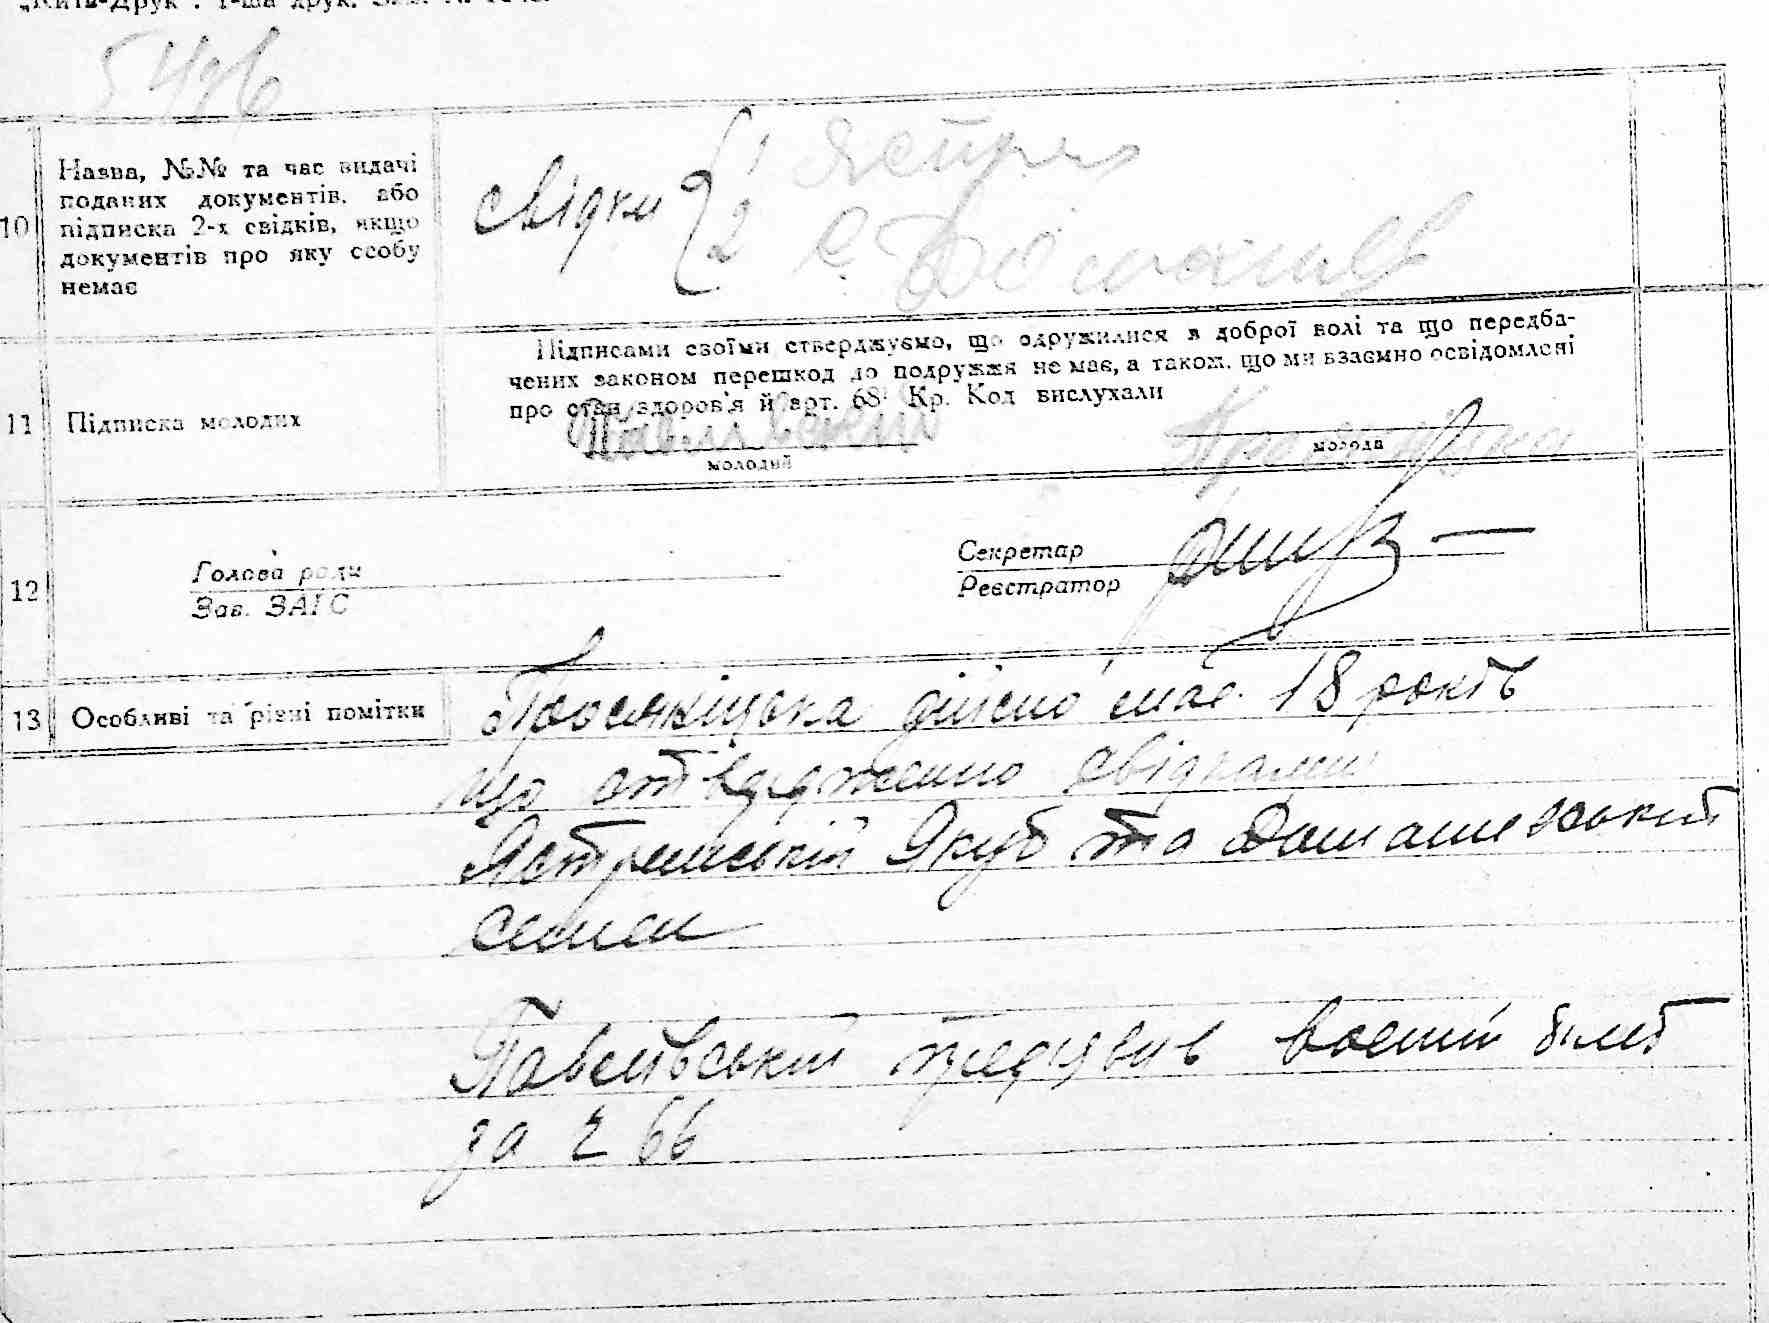 10 Назва, №№ та час видачі
поданих документів, або
підписка 2-х свідків, якщо
документів про яку особу
немає
свідки 1
2 С.
11 Підписка молодих
Підписами своїми стверджуємо, що одружилися з доброї волі та що передба-
чених законом перешкод до подружжя не має, а також, що ми взаємно освідомлені
про стан здоров'я й арт. 68 Кр. Код вислухали
молодий
молода
12 Голова ради
Зав. ЗАГС
Секретар
Реєстратор
13 Особливі та різні помітки
дійсно має 18 років
що ствердженно свідками
Якуб та Домашевський
Семен
предявив воєний білет
за № 66